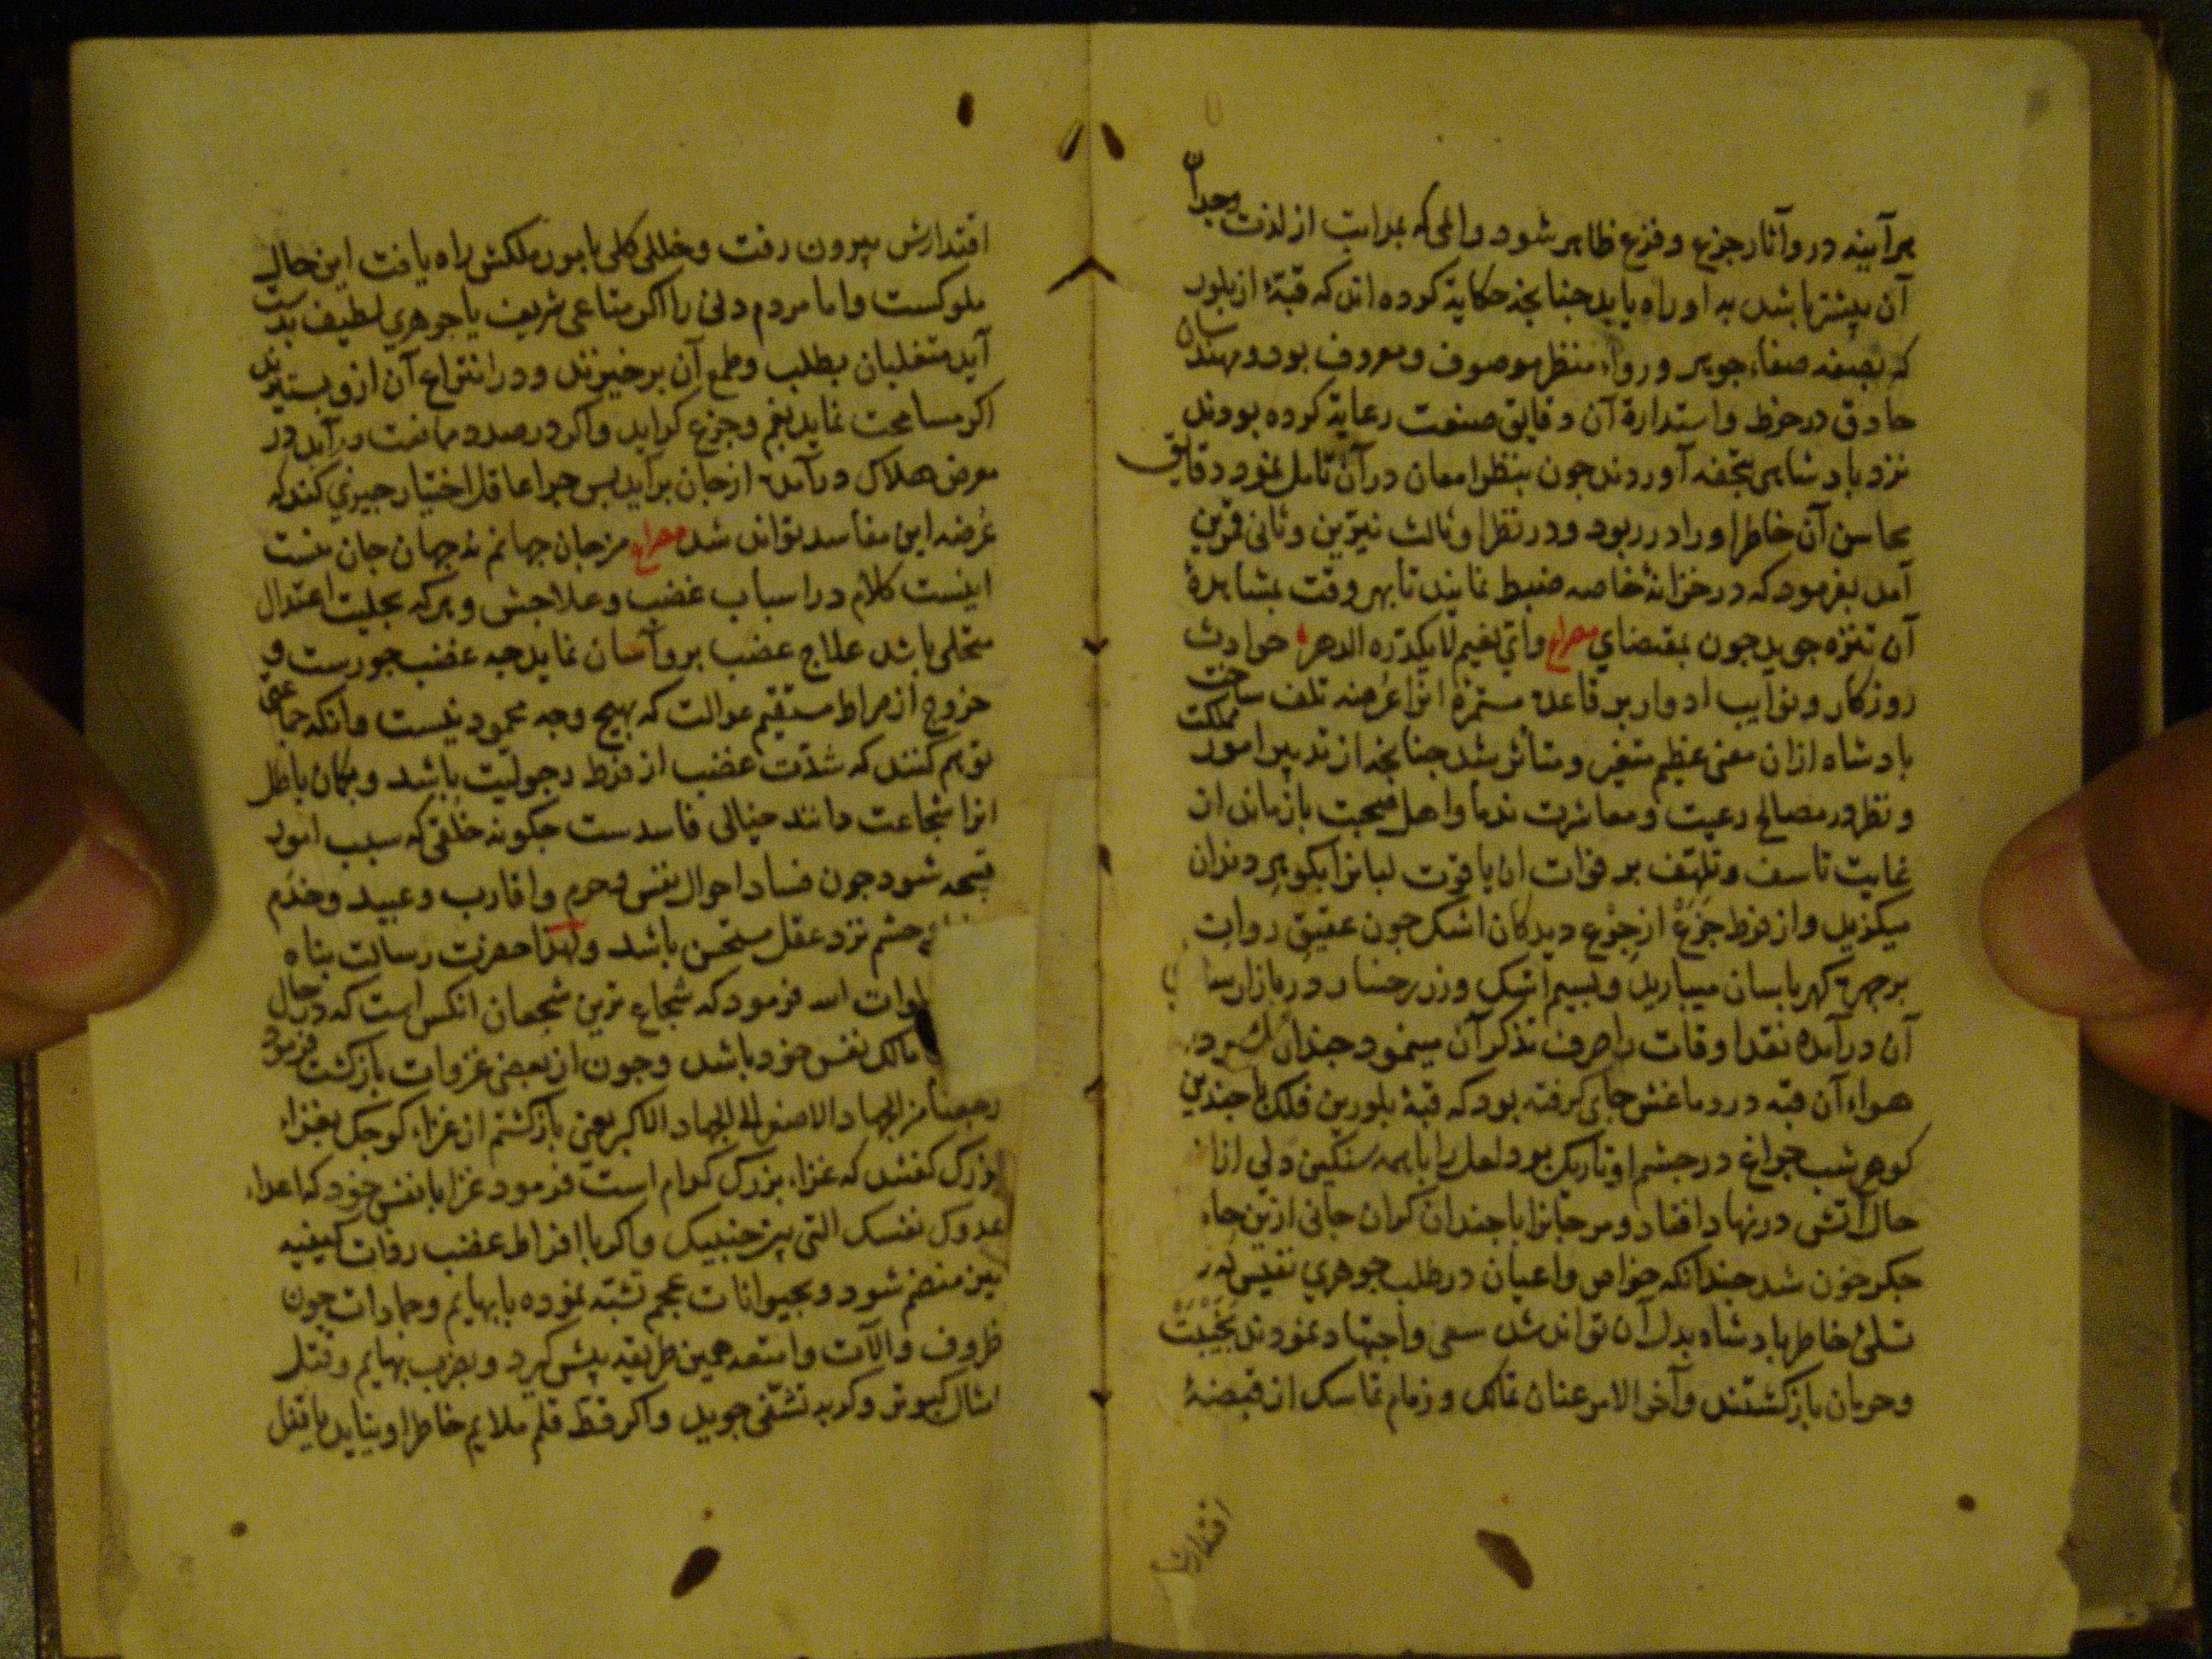 هرآینه در و آثار جزع و فزع ظاهر شود و المی که بمراتب از لذت وجدان
آن بیشتر باشد به او راه یابد جنانجه حکایة کرده اند که قبهٔ از بلور
که بصفه صفاء جوهر و رواء منظر موصوف و معروف بود و مهندسان
حاذق در خرط و استدارة آن دقایق صنعت رعایة کرده بودند
نزد بادشاهی بتحفه آوردند جون بنظر امعان در آن تامل نمود دقایق
محاسن آن خاطر او را در ربود و در نظر او ثالث نیرین و ثانی قمرین
آمد بفرمود که در خزانهٔ خاصه ضبط نمایند تا بهر وقت بمشاهدهٔ
آن تنزه جوید جون بمقتضای مصراع وای نعیم لا یکدره الدهر حوادث
روزکار و نوایب ادوار بر قاعدهٔ مستمره انرا عرضه تلف ساخت
بادشاه ازان معنی عظیم متغیر و متأثر شد جنانجه از تدبیر امور مملکت
و نظر در مصالح رعیت و معاشرت ندما و اهل صحبت بازماند از
غایت تاسف و تلهف بر فوات ان یاقوت لبانرا بکوهر دندان
میکزید و از فرط جزع از جزع دیدکان اشک جون عقیق روان
بر جهرهٔ کهرباسان میبارید و بسیم اشک و زر رخسار در بازار
آن درآمده نقد اوقات را صرف تذکر آن مینمود جندان
هواء آن قبه در دماغش جای کرفته بود که قبهٔ بلورین فلک با جندین
کوهر شب جراغ در جشم او تاریک بود لعل را با همه سنکین دلی ازان
حال آتش در نهاد افتاد و مرجانرا با جندان کران جانی ازین حاله
جکر خون شد جندانکه خواص و اعیان در طلب جوهری نفیس که
تسلئ خاطر بادشاه بدل آن تواند شد سعی و اجتهاد نمودند بخیبت
و حرمان بازکشتند و آخر الامر عنان تمالک و زمام تماسک از قبضهٔ
اقتدارش
اقتدارش بیرون رفت و خللی کلی بامور ملکش راه یافت این حال
ملوکست و اما مردم دنی را اکر متاعی شریف یا جوهری لطیف بدست
آید متغلبان بطلب و طمع آن برخیزند و در انتزاع آن ازو بستیزند
اکر مسامحت نماید بغم و جزع کراید و اکر در صدد ممانعت درآید در
معرض هلاک درآمده از جان برآید بس جرا عاقل اختیار جیزی کند که
عرضه این مفاسد تواند شد مصراع من جان جهانم نه جهان جان منست
اینست کلام در اسباب غضب و علاجش و هر که بحلیت اعتدال
متحلی باشد علاج غضب برو آسان نماید جه غضب جورست و
خروج از صراط مستقیم عدالت که بهیج وجه محمود نیست و آنکه جماعتی
توهم کنند که شدت غضب از فرط رجولیت باشد و بکمان باطل
انرا شجاعت دانند خیالی فاسدست جکونه خلقی که سبب امور
قبیحه شود جون فساد احوال نفس و حرم و اقارب و عبید و خدم
و حشم نزد عقل مستحسن باشد و لهذا حضرت رسالت بناه
صلوات الله فرمود که شجاع ترین شجعان انکس است که در حال
مالک نفس خود باشد و جون از بعضی غزوات بازکشت فرمود
رجعنا من الجهاد الاصغر الی الجهاد الاکبر یعنی بازکشتم از غزاء کوجک بغزاء
بزرک کفتند که غزاء بزرک کدام است فرمود غزا با نفس خود که اعداء
عدوک نفسک التی بین جنبیک و اکر با افراط غضب ردات کیفیه
نیز منضم شود و بحیوانات عجم تشبه نموده با بهایم و جمادات جون
ظروف و الآت و امتعه همین طریقه بیش کیرد و بضرب بهایم و قتل
امثال کبوتر و کربه تشفی جوید و اکر قط قلم ملایم خاطر او نیاید یا قفل